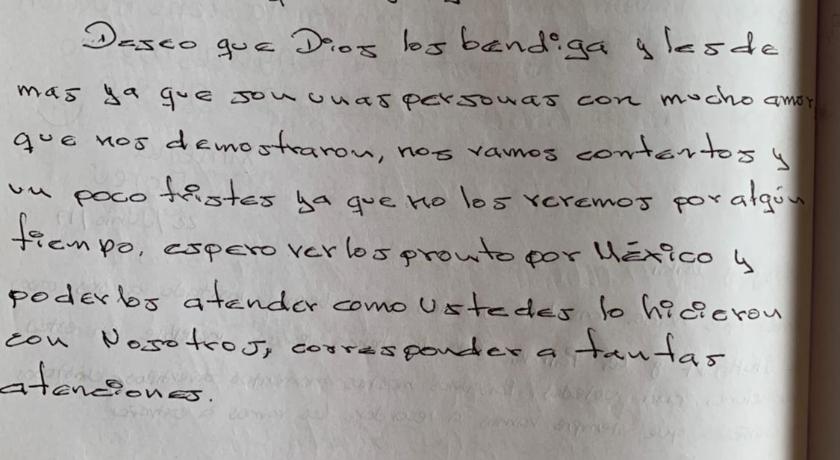 Deseo que Dios los bendiga y les de
mas ya que son unas personas con mucho amor
que nos demostraron, nos vamos contentos y
un poco tristes ya que no los veremos por algún
tiempo, espero verlos pronto por México y
poderlos atender como Ustedes lo hicieron
con Nosotros, corresponder a tantas
atenciones.